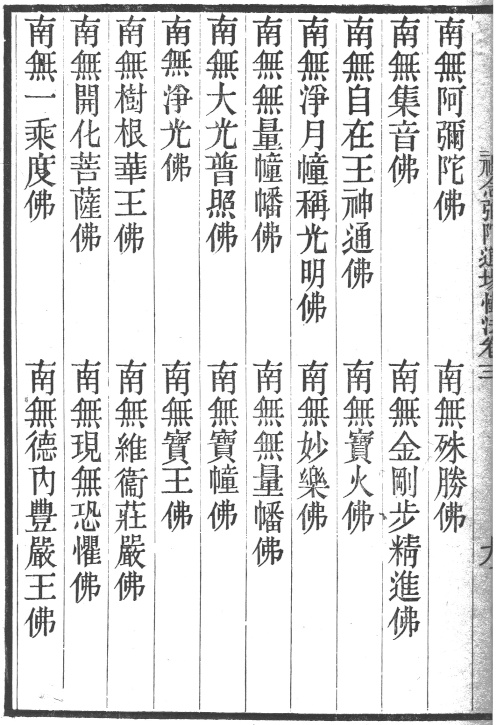 禮念彌陀道塲懺法卷三
九
南無阿彌陀佛 南無殊勝佛
南無集音佛 南無金剛步精進佛
南無自在王神通佛 南無寶火佛
南無淨月幢稱光明佛 南無妙樂佛
南無無量幢幡佛 南無無量幡佛
南無大光普照佛 南無寶幢佛
南無淨光佛 南無寶王佛
南無樹根華王佛 南無維衞莊嚴佛
南無開化菩薩佛 南無現無恐懼佛
南無一乘度佛 南無德內豐嚴王佛